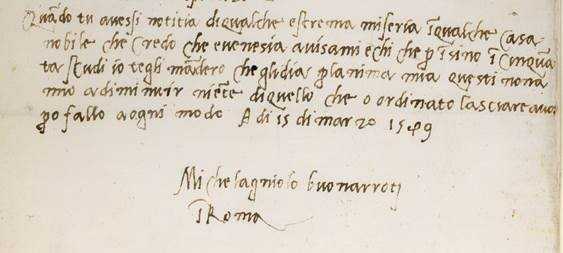 Quãdo tu avessi notitia diqualche estrema miseria ĩqualche casa
nobile che credo che evenesia avisami e chi che p ĩsino ĩ cinquã
ta scudi io tegli mãdero che glidia p lanima mia questi nonã
mio adiminuir niẽte diquello che o ordinato lasciare avoi
po fallo aogni modo A di 15 di marzo 1549
Michelagniolo buonarroti
ĩ Roma